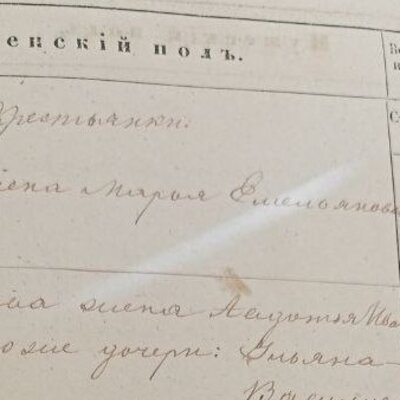 енскій полъ.
Крестьянки.
жена Марья Емельянова
ва жена Авдотья Ива
дочери: Ульяна